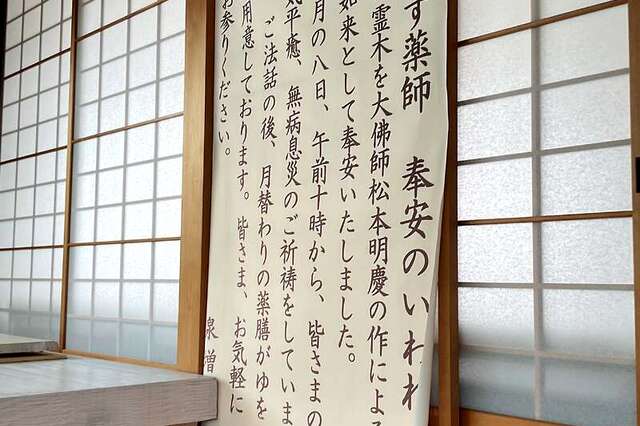 す薬師　奉安のいわれ
霊木を大佛師松本明慶の作によ
如来として奉安いたしました。
月の八日、午前十時から、皆さまの
気平癒、無病息災のご祈祷をしていま
ご法話の後、月替わりの薬膳がゆを
用意しております。皆さま、お気軽に
お参りください。
泉増